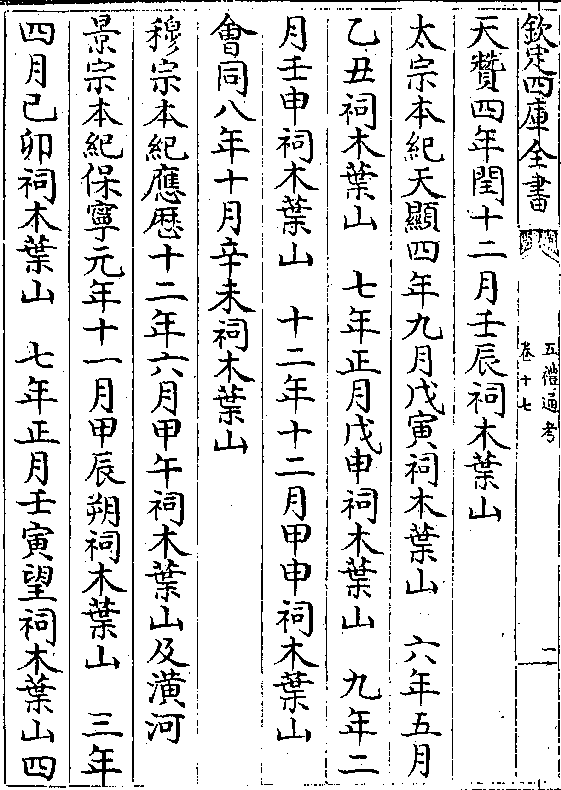 欽定四庫全書
五禮通考
卷十七
二
天贊四年閏十二月壬辰祠木葉山
太宗本紀天顯四年九月戊寅祠木葉山　六年五月
乙丑祠木葉山　七年正月戊申祠木葉山　九年二
月壬申祠木葉山　十二年十二月甲申祠木葉山
會同八年十月辛未祠木葉山
穆宗本紀應歴十二年六月甲午祠木葉山及潢河
景宗本紀保寧元年十一月甲辰朔祠木葉山　三年
四月己卯祠木葉山　七年正月壬寅望祠木葉山四